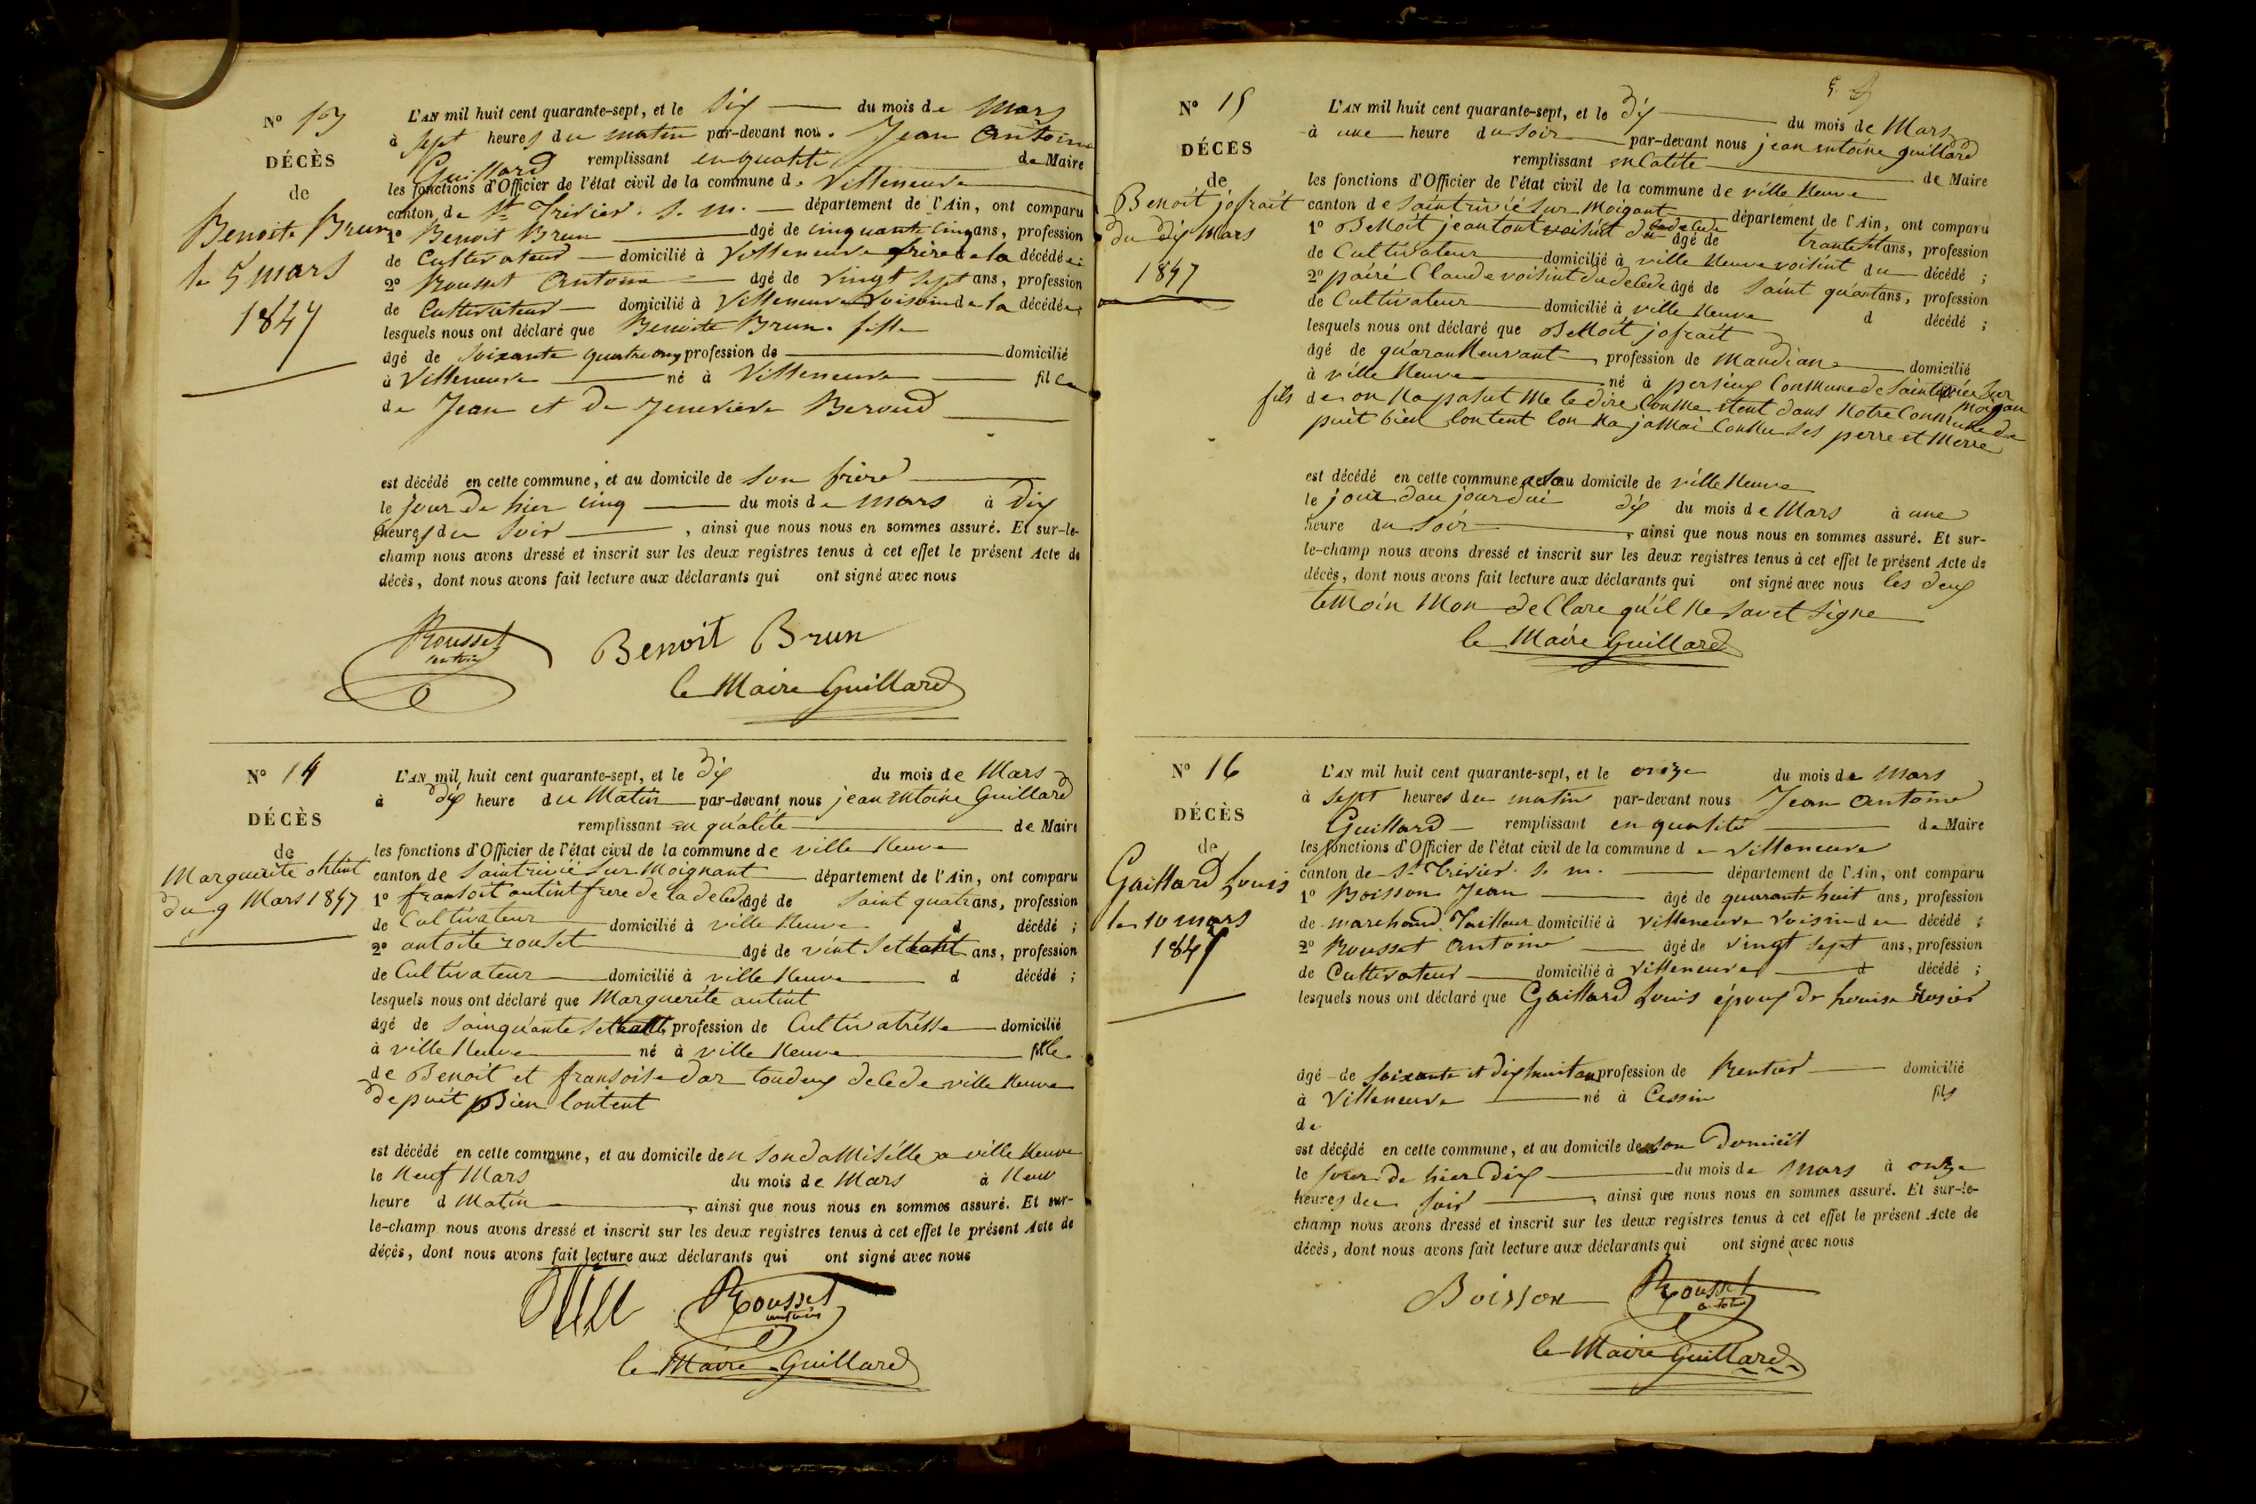 N° 13
DÉCÈS
de
Benoite Brun
le 5 mars
1847
L'AN mil huit cent quarante-sept, et le six du mois de Mars
à sept heures du matin par-devant nous Jean Antoine
Guillard remplissant en qualité de Maire
les fonctions d'Officier de l'état civil de la commune de Villeneuve
canton de St Trivier s. m. département de l'Ain, ont comparu
1° Benoit Brun âgé de cinquante cinq ans, profession
de Cultivateur domicilié à Villeneuve frère de la décédée
2° Rousset Antoine âgé de vingt sept ans, profession
de Cultivateur domicilié à Villeneuve voisin de la décédée
lesquels nous ont déclaré que Benoite Brun fille
âgé de soixante quatre ans profession de domicilié
à Villeneuve né à Villeneuve fille
de Jean et de Jenevieve Beroud
est décédé en cette commune, et au domicile de son frère
le jour de hier cinq du mois de mars à dix
heures du soir , ainsi que nous nous en sommes assuré. Et sur-le-
champ nous avons dressé et inscrit sur les deux registres tenus à cet effet le présent Acte de
décès, dont nous avons fait lecture aux déclarants qui ont signé avec nous
Rousset
antoine
Benoit Brun
le Maire Guillard
N° 14
DÉCÈS
de
Marguerite
du 9 Mars 1847
L'AN mil huit cent quarante-sept, et le dix du mois de Mars
à dix heure du Matin par-devant nous jean entoine Guillard
remplissant en qualite de Maire
les fonctions d'Officier de l'état civil de la commune de ville Neuve
canton de Saintrivié sur Moignant département de l'Ain, ont comparu
1° fransoit autint frere de la âgé de saint quatr ans, profession
de Cultivateur domicilié à ville Neuve d décédé ;
2° antoite rouset âgé de vint set ans, profession
de Cultivateur domicilié à ville Neuve d décédé ;
lesquels nous ont déclaré que Marguerite autint
âgé de sainquante set profession de Cultivatrisse domicilié
à ville Neuve né à ville Neuve fille
de Benoit et fransoise dar toudeux delede ville Neuve
depuit Bien lontent
est décédé en cette commune, et au domicile de son domisille a ville Neuve
le Neuf Mars du mois de Mars à Neuv
heure d Matin , ainsi que nous nous en sommes assuré. Et sur-
le-champ nous avons dressé et inscrit sur les deux registres tenus à cet effet le présent Acte de
décès, dont nous avons fait lecture aux déclarants qui ont signé avec nous
Rousset
antoine
le Maire Guillard
N° 15
DÉCÈS
de
Benoit jofrait
du dix Mars
1847
L'AN mil huit cent quarante-sept, et le dix du mois de Mars
à une heure du soir par-devant nous jean entoine guillard
remplissant en Calite de Maire
les fonctions d'Officier de l'état civil de la commune de ville Neuve
canton de saintrivié sur Moignant département de l'Ain, ont comparu
1° Benoit jeantont voisint du âgé de ans, profession
de Cultivateur domicilié à ville Neuve voisint du décédé ;
2° pairé Claude voisint du delede âgé de saint quant ans, profession
de Cultivateur domicilié à ville Neuve d décédé ;
lesquels nous ont déclaré que Benoit jofrait
âgé de profession de Mandian domicilié
à ville Neuve né à persieux Commune de Saintrivier sur
Moignan
fils de on Na pasut Me le dire Comme etent dans Notre Commune de
puit bien lontent lon Na jaMai Connu ses perre et Merre
est décédé en cette commune, et au domicile de ville Neuve
le jour dau jourdui dix du mois de Mars à une
heure du soir , ainsi que nous nous en sommes assuré. Et sur-
le-champ nous avons dressé et inscrit sur les deux registres tenus à cet effet le présent Acte de
décès, dont nous avons fait lecture aux déclarants qui ont signé avec nous les deux
teMoin Mon deClare qu'il Ne savet signe
le Maire Guillard
N° 16
DÉCÈS
de
Gaillard Louis
le 10 mars
1847
L'AN mil huit cent quarante-sept, et le onze du mois de Mars
à sept heures du matin par-devant nous Jean Antoine
Guillard remplissant en qualité de Maire
les fonctions d'Officier de l'état civil de la commune de Villeneuve
canton de St Trivier s. m. département de l'Ain, ont comparu
1° Boisson Jean âgé de quarante huit ans, profession
de marchand Tailleur domicilié à Villeneuve voisin du décédé ;
2° Rousset Antoine âgé de vingt sept ans, profession
de Cultivateur domicilié à Villeneuve d décédé ;
lesquels nous ont déclaré que Gaillard Louis époux de Louise Rosier
âgé de soixante et dix huit ans profession de Rentier domicilié
à Villeneuve né à Cessin fils
de
est décédé en cette commune, et au domicile de son Domicil
le jour de hier dix du mois de Mars à onze
heures du soir , ainsi que nous nous en sommes assuré. Et sur-le-
champ nous avons dressé et inscrit sur les deux registres tenus à cet effet le présent Acte de
décès, dont nous avons fait lecture aux déclarants qui ont signé avec nous
Boisson
Rousset
antoine
le Maire Guillard